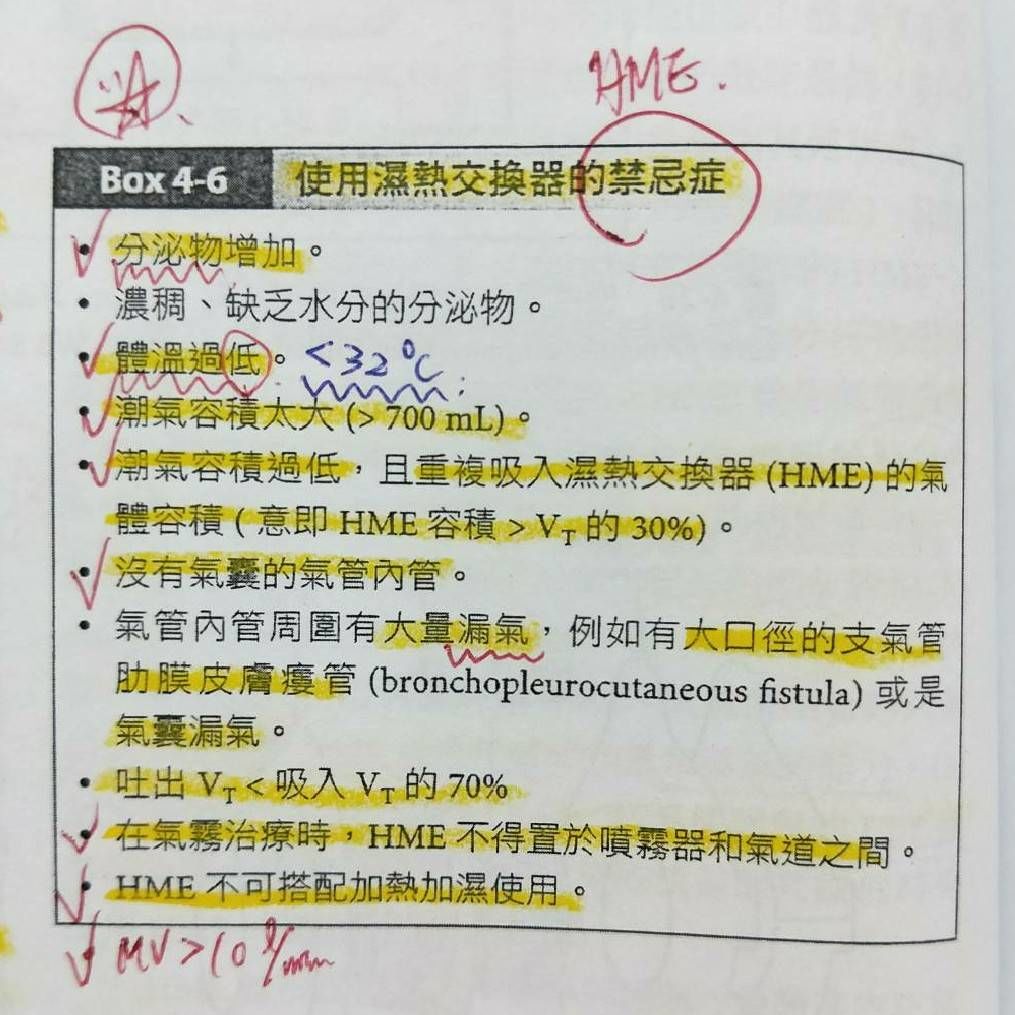 HME.
Box 4-6 使用濕熱交換器的禁忌症
• 分泌物增加。
• 濃稠、缺乏水分的分泌物。
• 體溫過低。 <32°C
• 潮氣容積太大 (> 700 mL)。
• 潮氣容積過低，且重複吸入濕熱交換器 (HME) 的氣
體容積 ( 意即 HME 容積 > VT 的 30%)。
• 沒有氣囊的氣管內管。
• 氣管內管周圍有大量漏氣，例如有大口徑的支氣管
肋膜皮膚瘻管 (bronchopleurocutaneous fistula) 或是
氣囊漏氣。
• 吐出 VT < 吸入 VT 的 70%
• 在氣霧治療時，HME 不得置於噴霧器和氣道之間。
• HME 不可搭配加熱加濕使用。
MV>10